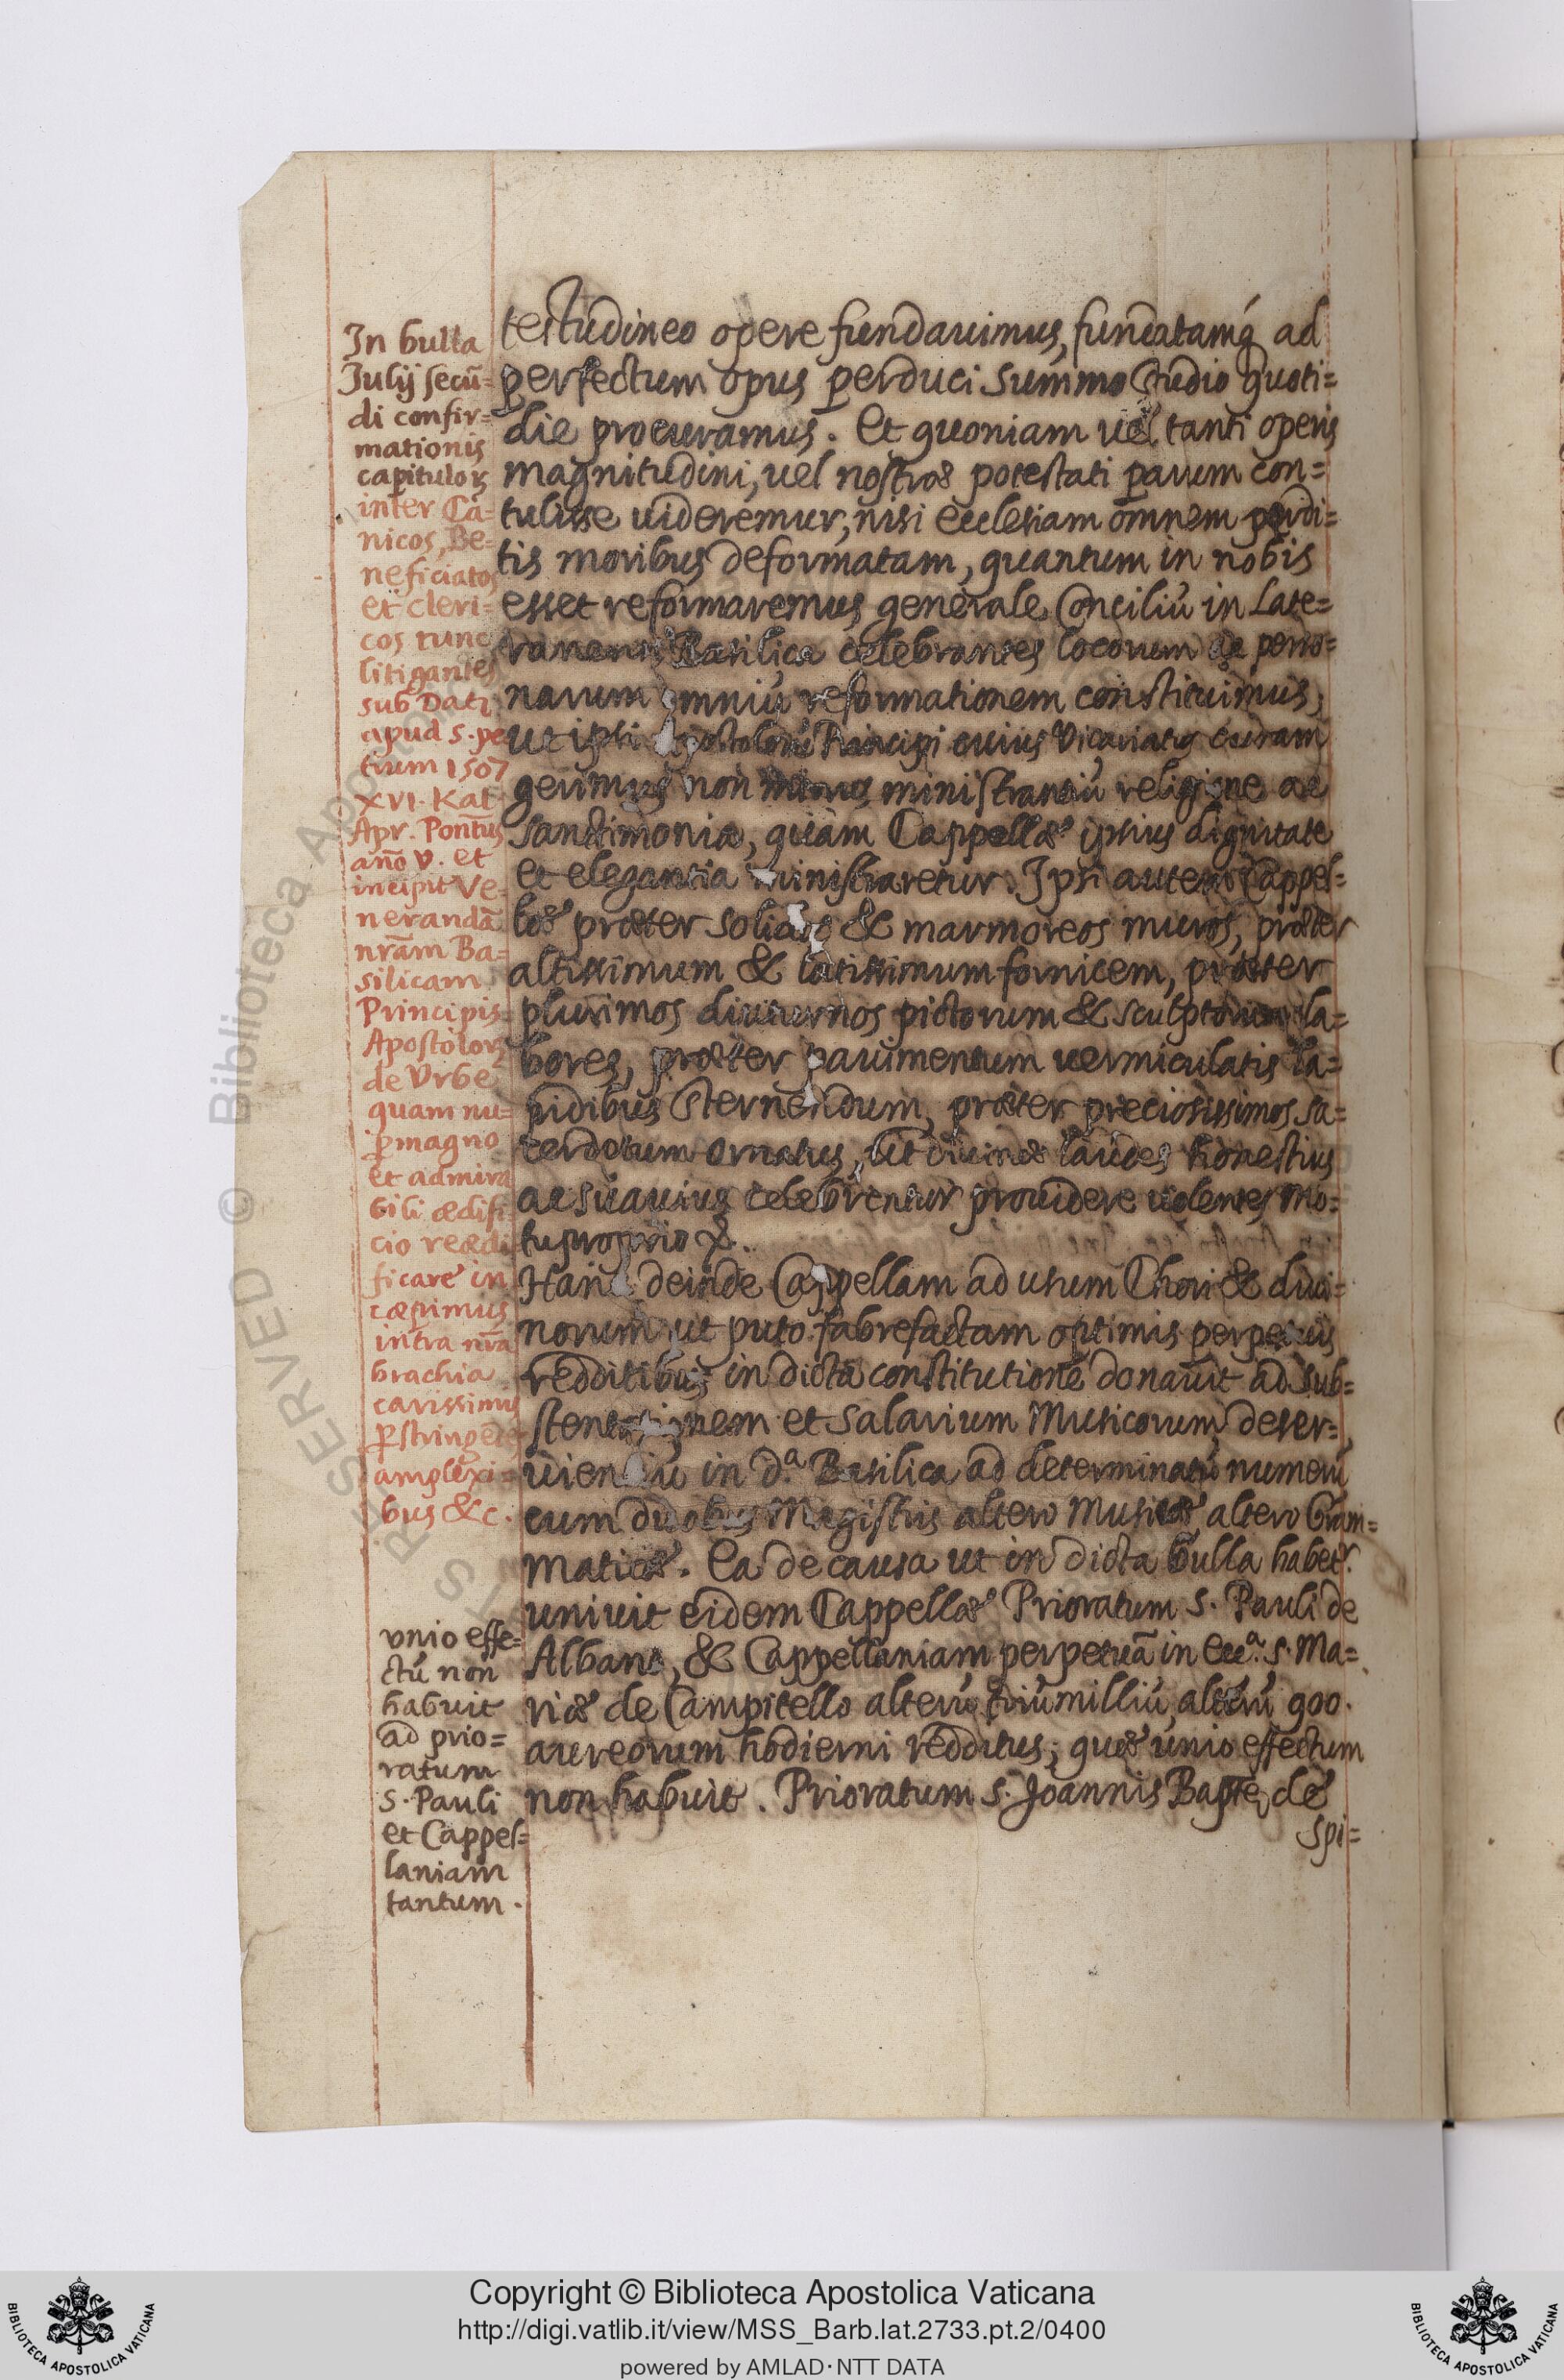 In bulla
Iulij secū=
di confir=
mationis
capitulor̨
inter Ca=
nicos, Be=
neficiatos
et cleri=
cos tunc
litigantes
sub Dat.
apud s. pe
trum 1507
XVI. Kal
Apr. Pont̄us
año V. et
incipit Ve=
nerandā
nr̄am Ba=
silicam
Principis
Apostolor̨
de Vrbe
quam nu=
ꝑ magno
et admira
bili ædifi
cio reædi
ficare in
cæpimus
intra nr̄a
brachia
carissimis
ꝑstringēte
amplexi=
bus &c.
vnio effe=
ctū non
habuit
ad prio=
ratum
S. Pauli
et Cappel=
laniam
tantum.
testudineo opere fundauimus, fundatamq́ ad
perfectum opus perduci summo studio quoti=
die procuramus. Et quoniam uel tanti operis
magnitudini, uel nostræ potestati parum con=
tulisse uideremur, nisi ecclesiam omnem perdi=
tis moribus deformatam, quantum in nobis
esset reformaremus generale Conciliū in Late=
ranensi Basilica celebrantes locorum ac perso=
narum omniū reformationem constituimus,
ut ipsi Apostolorū Principi cuius Vicariatus curam
gerimus non minus ministrantiū religione ac
sanctimonia, quàm Cappellæ ipsius dignitate
et elegantia ministraretur. Ipsi autem Cappel=
læ præter solidos & marmoreos muros, præter
altissimum & latissimum fornicem, præter
plurimos diuturnos pictorum & sculptorum la=
bores, præter pauimentum uermiculatis la=
pidibus sternendum, præter preciosissimos sa=
cerdotum ornatus, ut diuinæ laudes honestius
ac suauius celebrentur prouidere uolentes mo=
tu proprio &.
Hanc deinde Cappellam ad usum Chori & diui=
norum ut puto fabrefactam optimis perpetuis
redditibus in dicta constitutione donauit ad sub=
stentationem et salarium Musicorum deser=
uientiū in d.ª Basilica ad determinatū numerū
cum duobus Magistris altero Musicæ altero Gram=
maticæ. Ea de causa ut in dicta bulla habet.ʳ
uniuit eidem Cappellæ Prioratum S. Pauli de
Albano, & Cappellaniam perpetuā in Ecc.ª S. Ma=
riæ de Campitello alterū triū milliū, alterū 900.
aureorum hodierni redditus; quæ unio effectum
non habuit. Prioratum S. Joannis Bapte de
spi=
© Biblioteca Apostolica
RIGHTS RESERVED
Copyright © Biblioteca Apostolica Vaticana
http://digi.vatlib.it/view/MSS_Barb.lat.2733.pt.2/0400
powered by AMLAD·NTT DATA
BIBLIOTECA APOSTOLICA VATICANA
BIBLIOTECA APOSTOLICA VATICANA